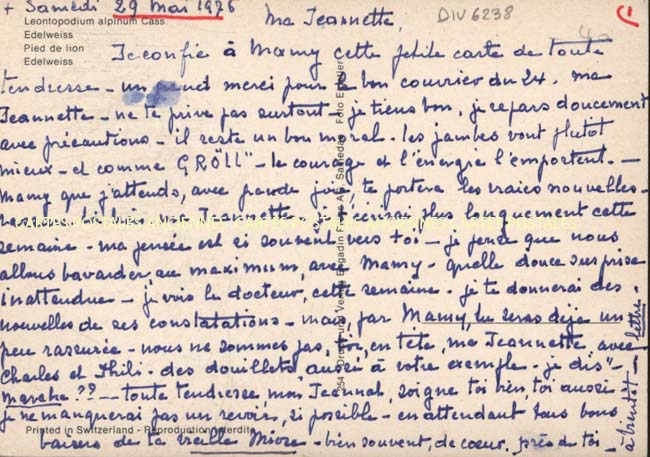 + Samedi 29 mai 1976
DIV 6238
1
Leontopodium alpinum Cass.
Edelweiss
Pied de lion
Edelweiss
Ma Jeannette,
Je confie à Mamy cette petite carte de toute
tendresse - un grand merci pour le bon courrier du 24. Ma
Jeannette - ne te prive pas surtout - je tiens bon, je repars doucement
avec précautions - il reste un bon moral. les jambes vont plutôt
mieux - et comme "GRÖLL" - le courage et l'énergie l'emportent. -
Mamy que j'attends, avec grande joie, te portera les vraies nouvelles -
Jeannette - je t'écrirai plus longuement cette
semaine - ma pensée est si souvent vers toi - je pense que nous
allons bavarder, au maximum, avec Mamy - quelle douce surprise
inattendue - je vois le docteur, cette semaine - je te donnerai des
nouvelles de ses constatations - mais, par Mamy, tu seras déjà un
peu rassurée - nous ne sommes pas, toi, en tête, ma Jeannette avec
Charles et Phili - des douillets, aussi à votre exemple - je dis "
marche ?? - toute tendresse, mon Jeannot, soigne toi bien, toi aussi -
je ne manquerai pas un revoir, si possible - en attendant tous bons
baisers de ta vieille - bien souvent, de cœur, près de toi -
à bientôt - lettre
Printed in Switzerland - Reproduction interdite
254
Engadin Press AG, Samedan
Foto